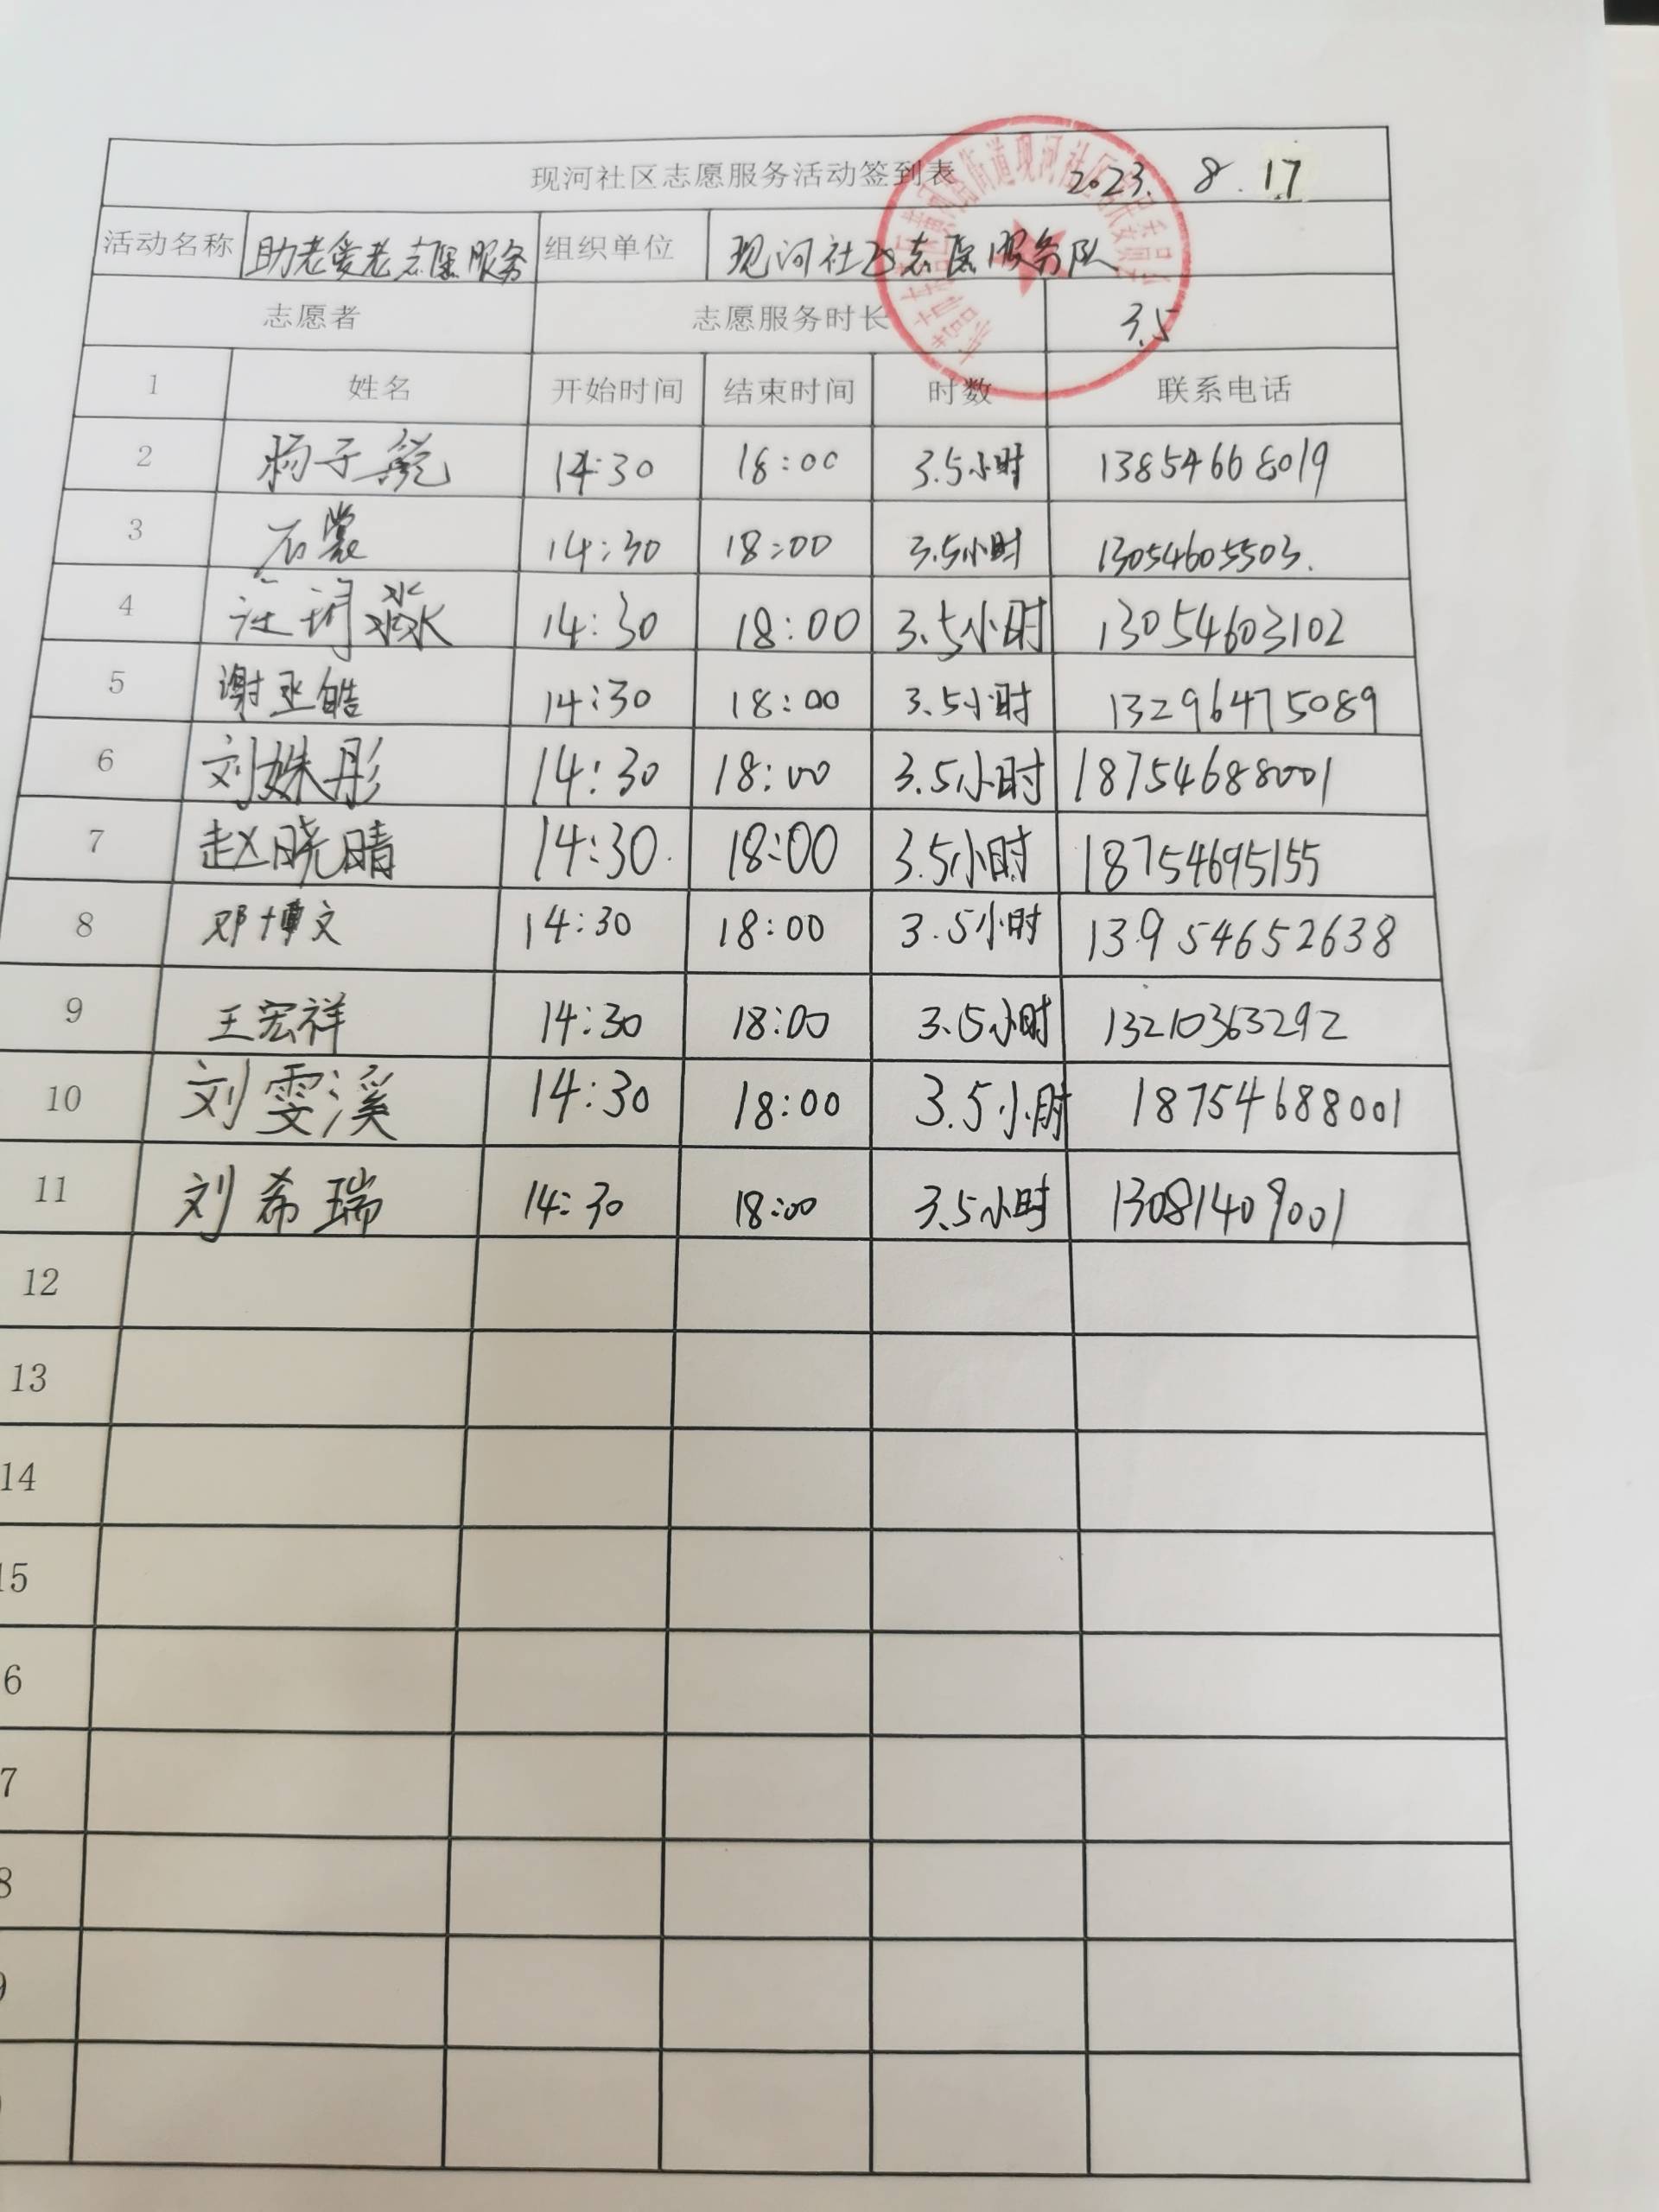 现河社区志愿服务活动签到表 2023. 8. 17
活动名称 助老爱老志愿服务 组织单位 现河社区志愿服务队
志愿者 志愿服务时长 3.5
1 姓名 开始时间 结束时间 时数 联系电话
2 杨子 14:30 18:00 3.5小时 13854668019
3 石裳 14:30 18:00 3.5小时 13054605503.
4 汪诃淼 14:30 18:00 3.5小时 13054603102
5 谢丞皓 14:30 18:00 3.5小时 13296475089
6 刘姝彤 14:30 18:00 3.5小时 18754688001
7 赵晓晴 14:30 18:00 3.5小时 18754695155
8 邓博文 14:30 18:00 3.5小时 13954652638
9 王宏祥 14:30 18:00 3.5小时 13210363292
10 刘雯溪 14:30 18:00 3.5小时 18754688001
11 刘希瑞 14:30 18:00 3.5小时 13081409001
12
13
14
15
6
7
8
9